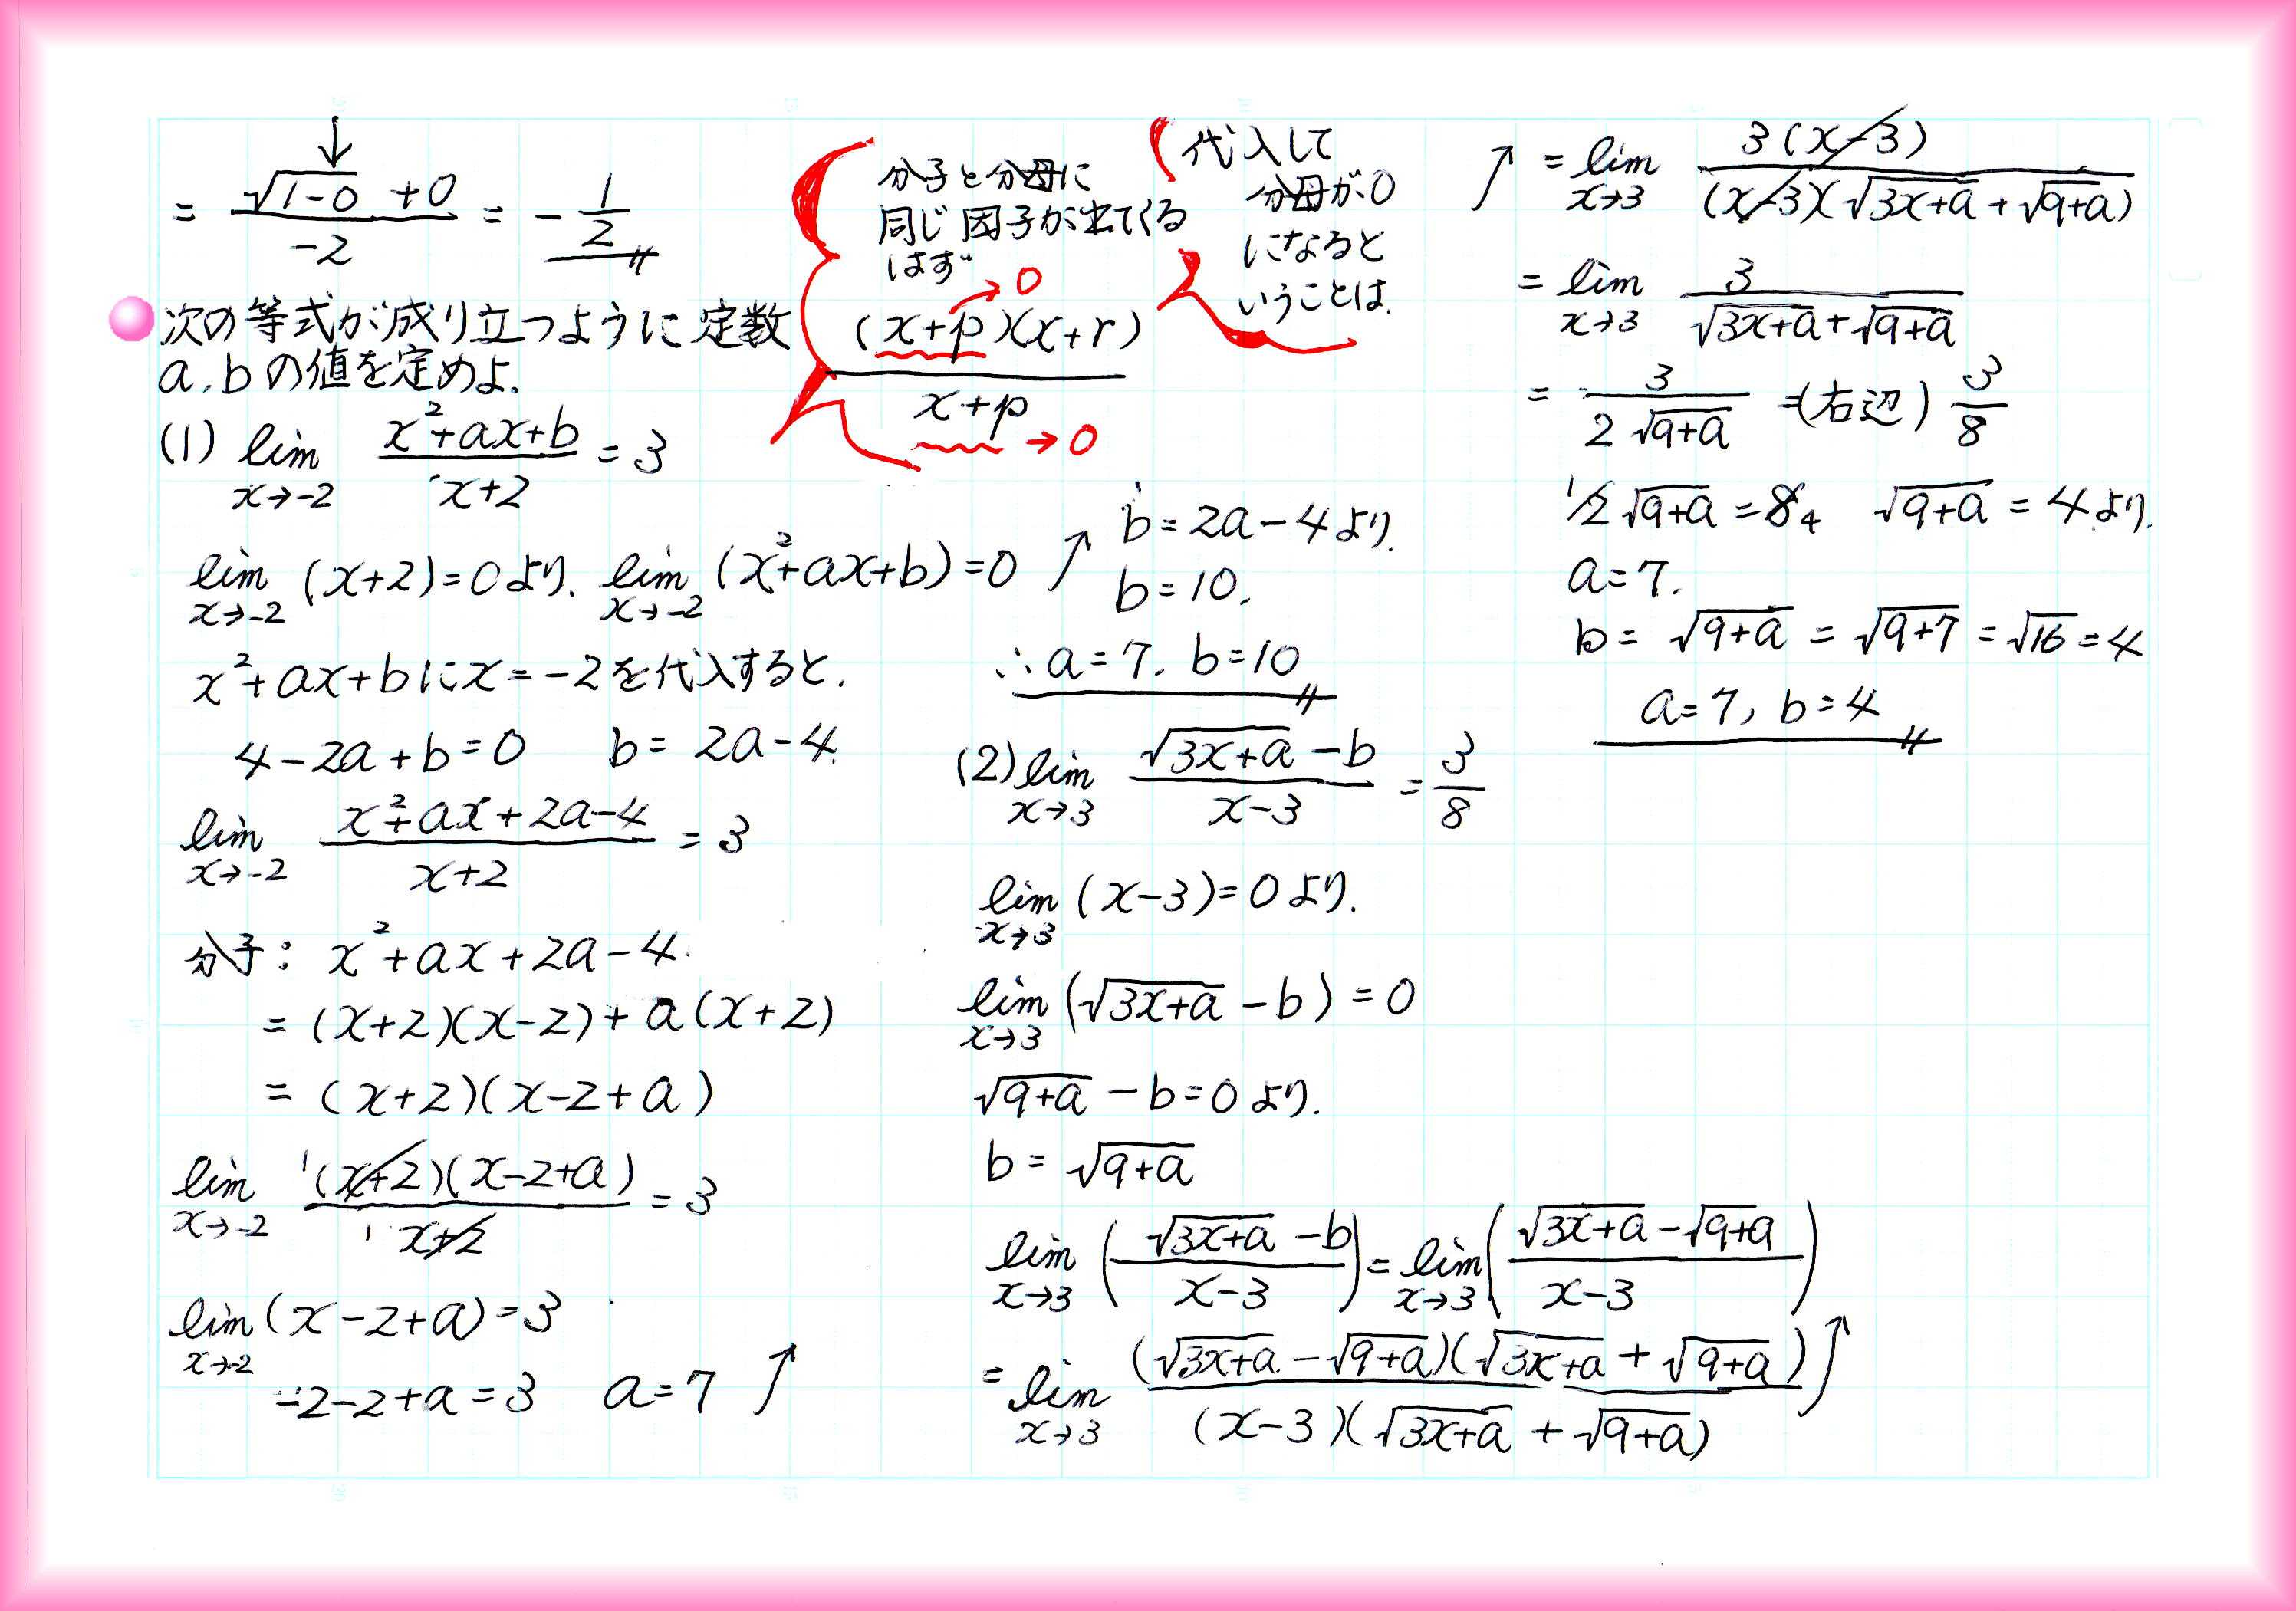 ↓
= (√(1-0) +0)/(-2) = -1/2 〃
次の等式が成り立つように定数
a, bの値を定めよ.
(1) lim_{x→-2} (x²+ax+b)/(x+2) = 3
lim_{x→-2} (x+2)=0より. lim_{x→-2} (x²+ax+b)=0 ↗
x²+ax+bにx=-2を代入すると.
4-2a+b=0 b=2a-4.
lim_{x→-2} (x²+ax+2a-4)/(x+2) = 3
分子: x²+ax+2a-4.
= (x+2)(x-2)+a(x+2)
= (x+2)(x-2+a)
lim_{x→-2} ¹(x+2)(x-2+a)/¹(x+2) = 3
lim_{x→-2} (x-2+a)=3
-2-2+a=3 a=7 ↗
代入して
分母が0
になると
いうことは.
分子と分母に
同じ因子が出てくる
はず
→0
(x+p)(x+r)/(x+p)
→0
b=2a-4より.
b=10,
∴a=7, b=10 〃
(2) lim_{x→3} (√(3x+a) -b)/(x-3) = 3/8
lim_{x→3} (x-3)=0より.
lim_{x→3} (√(3x+a) -b) = 0
√(9+a) -b=0より.
b=√(9+a)
lim_{x→3} ((√(3x+a) -b)/(x-3)) = lim_{x→3} ((√(3x+a) -√(9+a))/(x-3))
= lim_{x→3} (√(3x+a) -√(9+a))(√(3x+a) +√(9+a))/((x-3)(√(3x+a) +√(9+a))) ↗
↗ = lim_{x→3} 3(x-3)/((x-3)(√(3x+a) +√(9+a)))
= lim_{x→3} 3/(√(3x+a)+√(9+a))
= 3/(2√(9+a)) =(右辺) 3/8
¹2√(9+a) =8₄ √(9+a) = 4より.
a=7.
b= √(9+a) = √(9+7) =√16 =4
a=7, b=4 〃